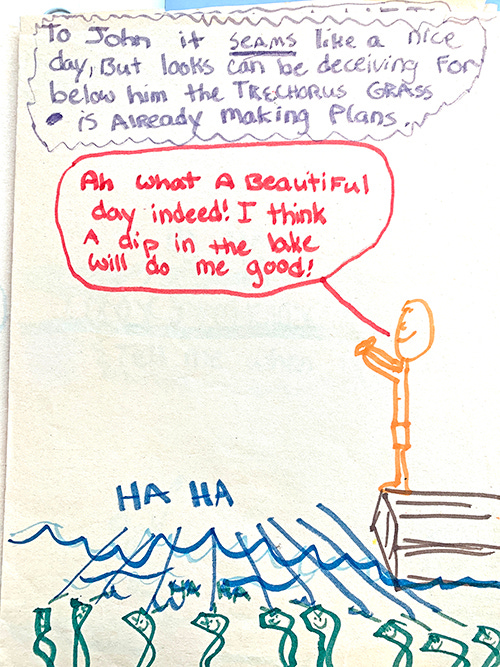 To John it SEAMS like a nice
day, But looks can be deceiving For
below him the TRECHORUS GRASS
is Already Making Plans.
Ah what A Beautiful
day indeed! I think
A dip in the lake
will do me good!
HA HA
HA HA